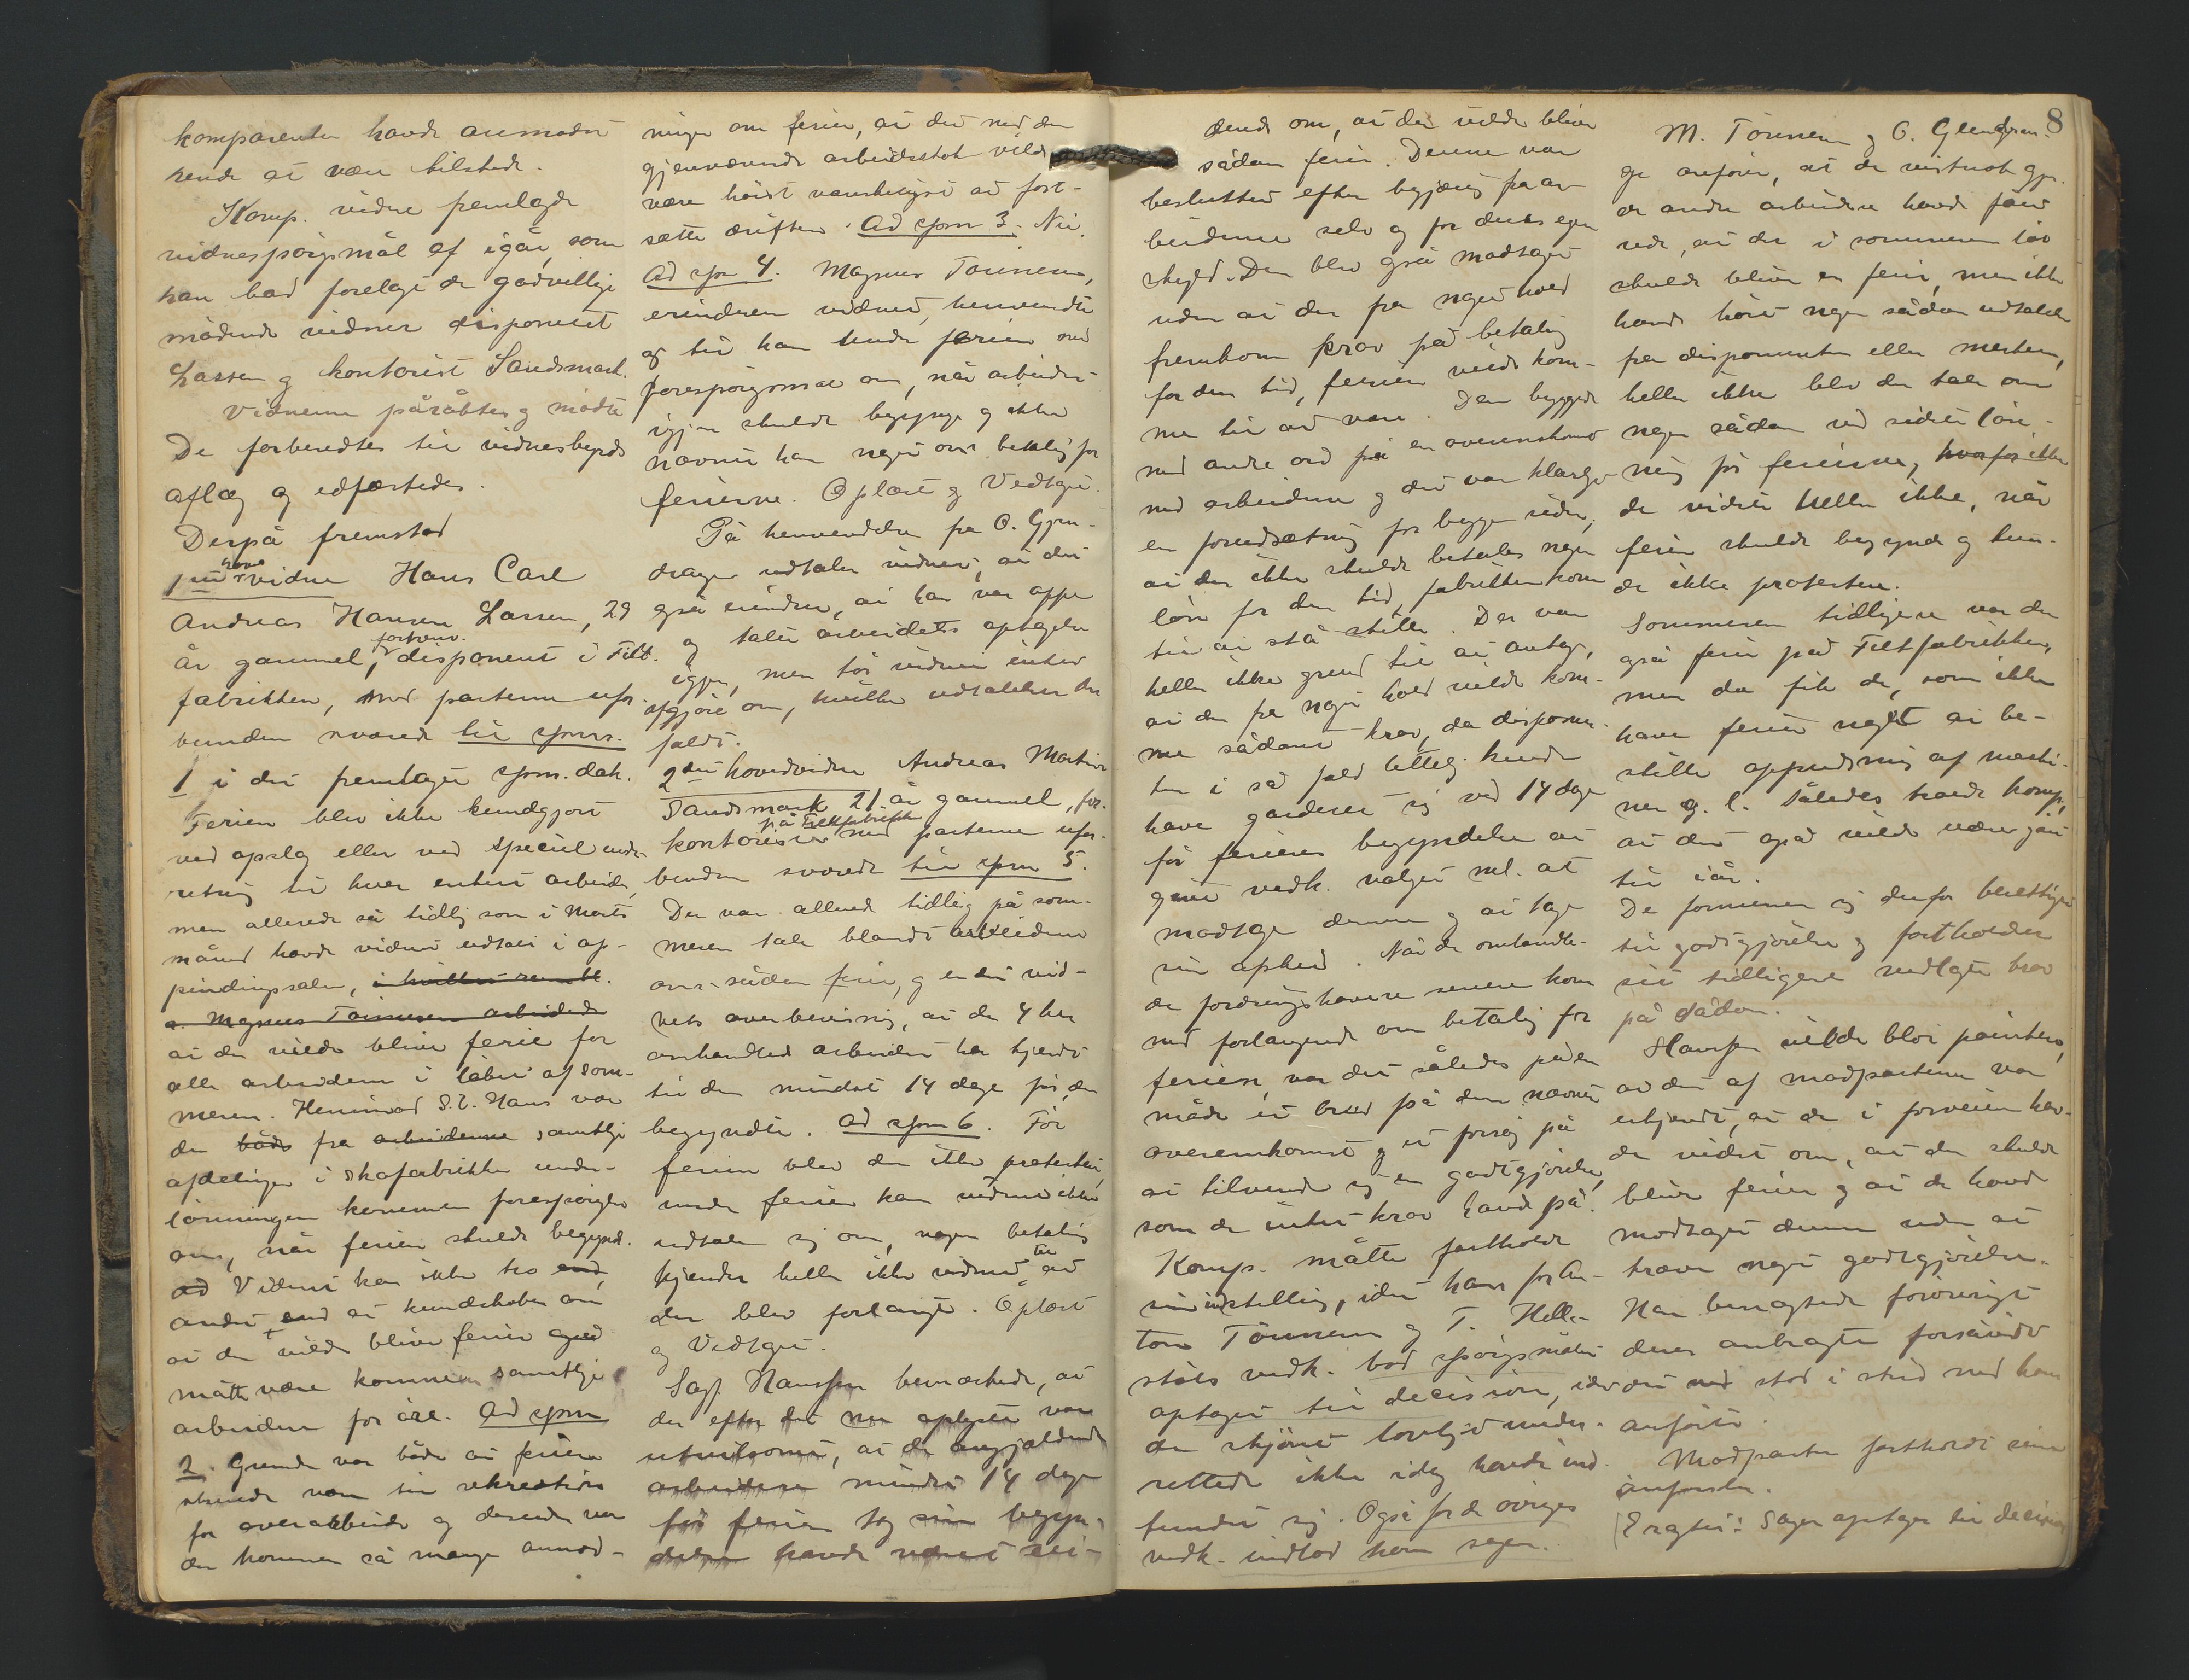 komparenten havde anmodet
hende at være tilstede.
Komp. vidne fremlagde
vidnespörgsmål af igår, som
han bad forelagt de godvillige
mödende vidner disponent
Lassen og kontorist Sandsmark.
Vidnerne påråbtes og mödte
De forberedtes til vidnesbyrds
aflæg og edfæstedes.
Derpå fremstod
1ste hoved vidne Hans Carl
Andreas Hansen Lassen, 29
år gammel, forhenv. disponent i Filt-
fabrikken, med parterne ufor-
bunden svarede til spms.
1 i det fremlagte spm. dok.
Ferien blev ikke kundgjort
ved opslag eller ved speciel under-
retning til hver enkelt arbeider,
men allerede så tidlig som i Marts
måned havde vidnet udtalt i op-
pindingssalen, i hvilken
Magnus Tönnesen arbeidede
at der vilde blive ferie for
alle arbeiderne i löbet af som-
meren. Henimod S.t. Hans var
der både fra arbeiderne samtlige
afdelinger i skofabrikken under
lönningen kommen forespörgsler
om, når ferien skulde begynde.
Vidnet kan ikke tro
andet end at kundskaben om
at der vilde blive ferie også
måtte være kommen samtlige
arbeidere for öre. Ad spm
2. Grunden var både at ferien
skulde være til rekreation
for overarbeide og desuden var
der kommen så mange anmod-
ninger om ferier, at det med den
gjenværende arbeidsstok vilde
være höist vanskeligst at fort-
sætte driften. Ad spm 3. Nei.
Ad spm 4. Magnus Tönnesen,
erindrer vidnet, henvendte
sig til ham under ferien med
forespörgsmål om, når arbeidet
igjen skulde begynge og ikke
nævnte han noget om betaling for
ferierne. Oplæst og Vedtaget.
På henvendelse fra O. Gjen-
drager udtaler vidnet, at det
også erindrer, at han var oppe
og talte arbeidets optagelse
igjen, men tör vidnet intet
afgjöre om, hvilke udtalelser der
faldt.
2det hovedvidne Andreas Martin
Sandsmark 21 år gammel, for.
kontorist på Filtfabrikken med parterne ufor-
bunden svarede til spm 5.
Der var allerede tidlig på som-
meren tale blandt arbeiderne
om sådan ferie, og er det vid-
nets overbevisning, at de 4 her
omhandlede arbeidere har kjendt
til den mindst 14 dage för den
begyndte. Ad spm 6. För
ferien blev der ikke protesteret,
under ferien kan vidnet ikke
udtale sig om, nogen betaling
kjender heller ikke vidnet til at
der blev forlangt. Oplæst
og Vedtaget.
Sagf. Hanssen bemærkede, at
der efter det nu oplyste var
utvilsomt, at de angjældende
arbeidere mindst 14 dage
för ferien tog sin begyn-
delse havde været vi-
dende om, at der vilde blive
sådan ferie. Denne var
besluttet efter begjæring fra ar-
beiderne selv og for deres egen
skyld. Den blev også modtaget
uden at der fra noget hold
fremkom krav på betaling
for den tid, ferien vilde kom-
me til at vare. Den byggede
med andre ord på en overenskomst
med arbeiderne og det var klarligt
en forudsætning for begge sider,
at der ikke skulde betales nogen
lön for den tid, fabrikken kom
til at stå stille. Der var
heller ikke grund til at antage,
at der fra noget hold vilde kom-
me sådant krav, da disponen-
ten i så fald lettelig kunde
have garderet sig ved 14 dage
för feriens begyndelse at
give vedk. valget ml. at
modtage denne og at tage
sin afsked. Når de omhandle-
de fordringshavere senere kom
med forlangende om betaling for
ferien, var det således på en
måde et brud på den nævnte
overenskomst og et forsög på
at tilvende sig en godtgjörelse,
som de intet krav havde på.
Komp. måtte fastholde
sin indstilling, idet han for An-
tons Tönnesen og T. Helle-
stöls vedk. bad spörgsmålet
optaget til decision, idet
de skjönt lovligt under-
rettede ikke idag havde ind-
fundet sig. Også for de övriges
vedk. indlod han sagen.
8
M. Tönnesen og O. Gjendran-
ge anförer, at de vistnok gjen-
de andre arbeidere havde fået
vide, at der i sommerens löb
skulde blive en ferie, men ikke
havde hört nogen sådan udtalelse
fra disponenten eller mesteren,
heller ikke blev der tale om
nogen sådan ved sidste lön-
ning för ferierne, hvorfor ikke
de vidste heller ikke, når
ferien skulde begynde og kun-
de ikke protestere.
Sommeren tidligere var der
også ferie på Filtfabrikken,
men da fik de, som ikke
have ferie noget at be-
stille oppudsning af maski-
ner o. l. Således troede komp.
at det også vilde være gået
til iår.
De formener sig derfor berettiget
til godtgjörelse og fastholder
sit tidligere vedtagte krav
på sådan.
Hanssen vilde blot påpeke,
at det af modparterne var
erkjendt, at de i forveien hav-
de vidst om, at der skulde
blive ferier og at de havde
modtaget denne uden at
kræve noget godtgjörelse.
Han benægtede forövrigt
deres anbragte forsåvidt
det stod i strid med hans
anförte.
Modparten fastholdt sine
anförsler.
Eragtet: Sagen optages til decision